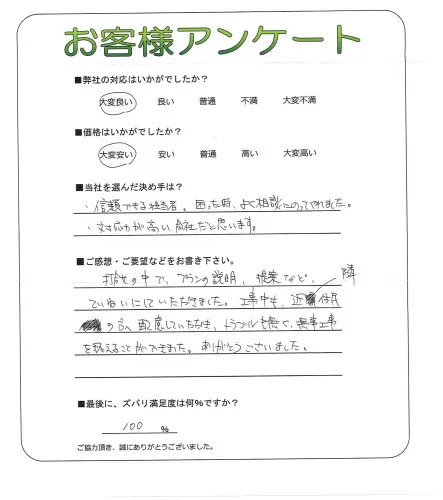 お客様アンケート
■弊社の対応はいかがでしたか？
大変良い 良い 普通 不満 大変不満
■価格はいかがでしたか？
大変安い 安い 普通 高い 大変高い
■当社を選んだ決め手は？
・信頼できる担当者。困った時、よく相談にのってくれました。
・対応力が高い会社だと思います。
■ご感想・ご要望などをお書き下さい。
打合せの中で、プランの説明、提案など、
ていねいにしていただきました。工事中も、近隣住民
の方へ配慮していただき、トラブルも無く、無事工事
を終えることができました。ありがとうございました。
■最後に、ズバリ満足度は何％ですか？
100 ％
ご協力頂き、誠にありがとうございました。